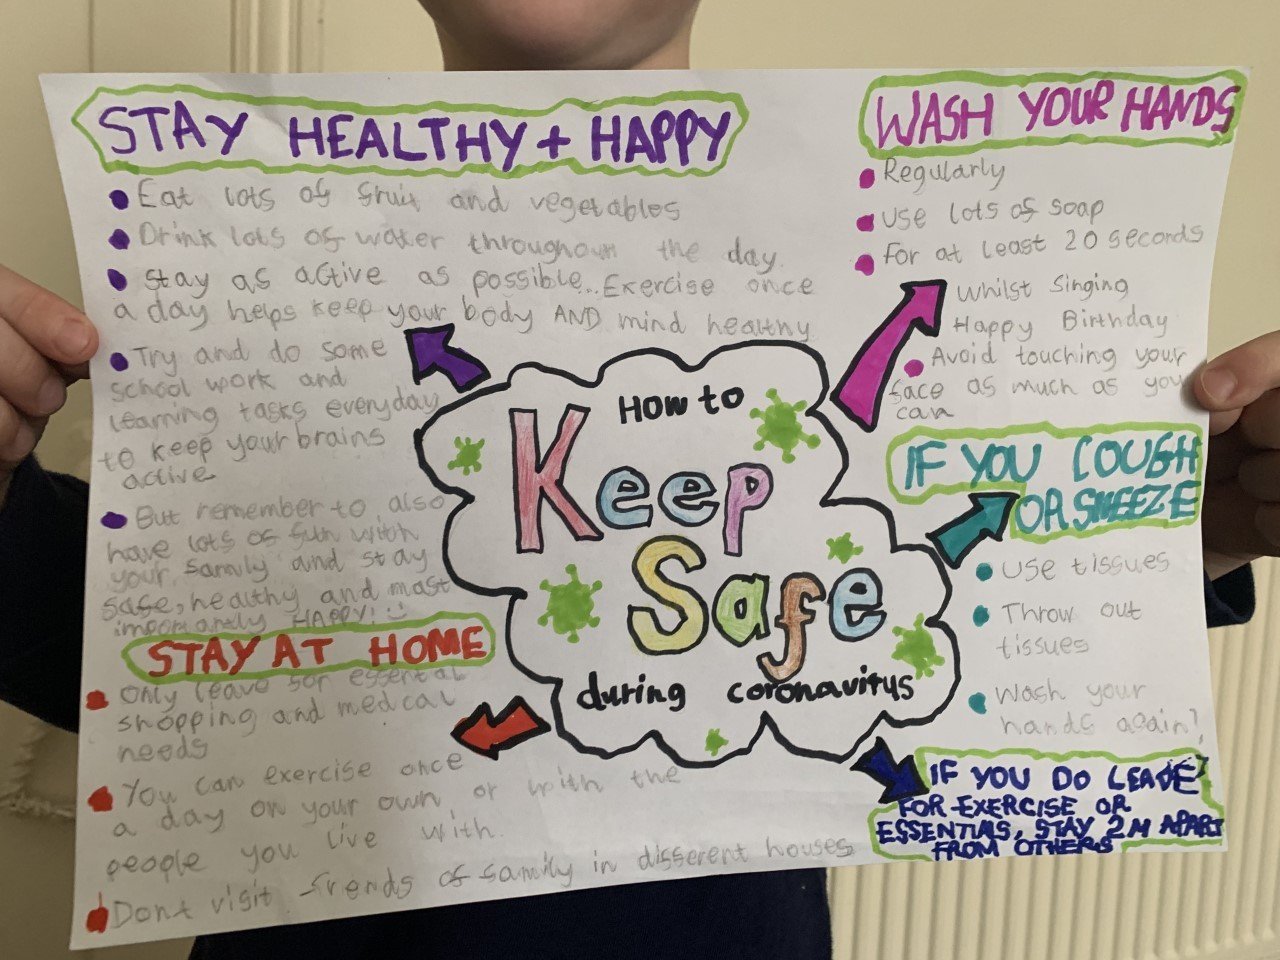 STAY HEALTHY + HAPPY
Eat lots of fruit and vegetables
Drink lots of water throughout the day
Stay as active as possible.. Exercise once
a day helps keep your body AND mind healthy
Try and do some
school work and
learning tasks everyday
to keep your brains
active
But remember to also
have lots of fun with
your family and stay
safe, healthy and most
importantly HAPPY!
STAY AT HOME
Only leave for essential
shopping and medical
needs
You can exercise once
a day on your own or with the
people you live with
Dont visit friends of family in different houses
How to
Keep
Safe
during coronavirus
WASH YOUR HANDS
Regularly
Use lots of soap
For at least 20 seconds
Whilst Singing
Happy Birthday
Avoid touching your
face as much as you
can
IF YOU COUGH
OR SNEEZE
Use tissues
Throw out
tissues
Wash your
hands again!
IF YOU DO LEAVE
FOR EXERCISE OR
ESSENTIALS, STAY 2M APART
FROM OTHERS